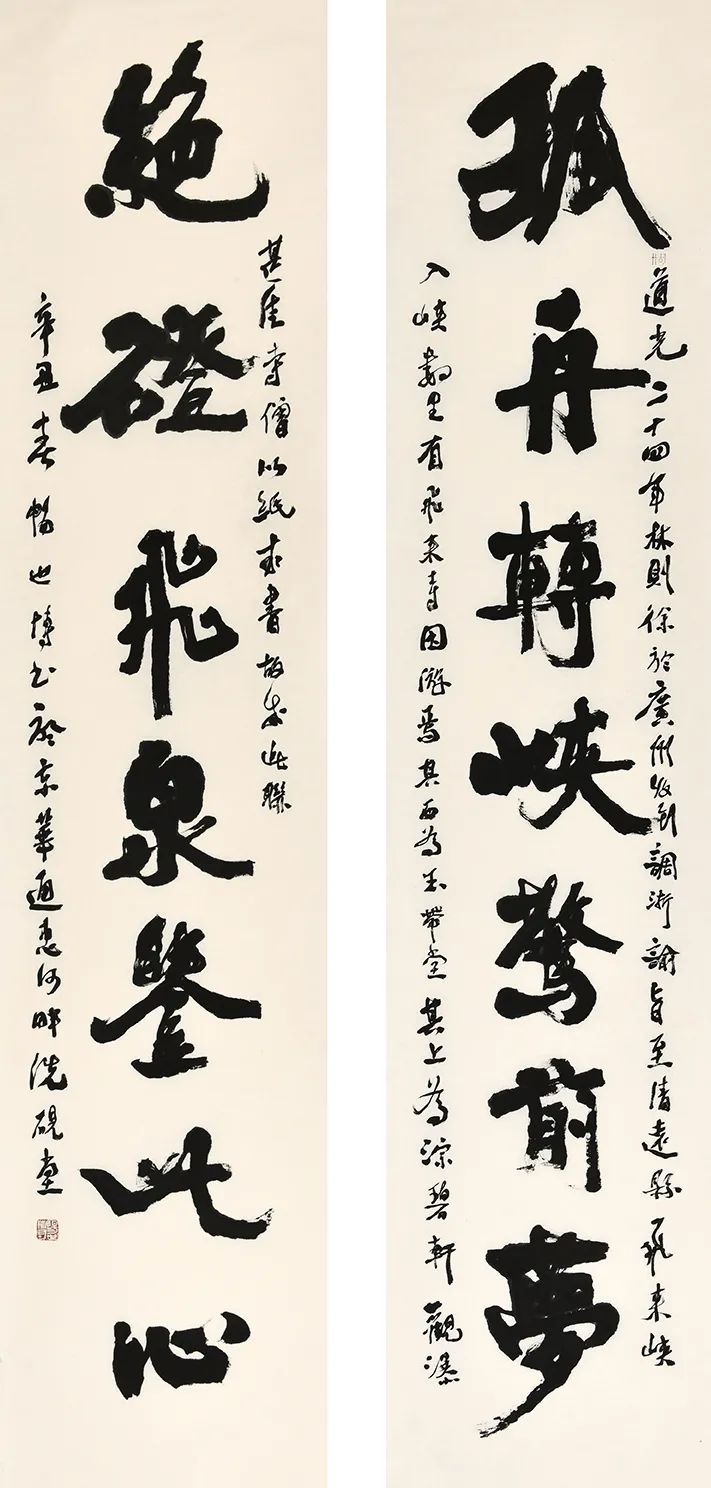 孤舟轉峽驚前夢
道光二十四年林則徐於廣州收到調浙諭旨至清遠縣飛來峽
入峽數里有飛来寺因游焉其西為玉帶堂其上為漾碧軒觀瀑
絶磴飛泉鑒此心
甚佳寺僧以紙求書故成此聯
辛丑春暢也博書於京華通惠河畔洗硯堂